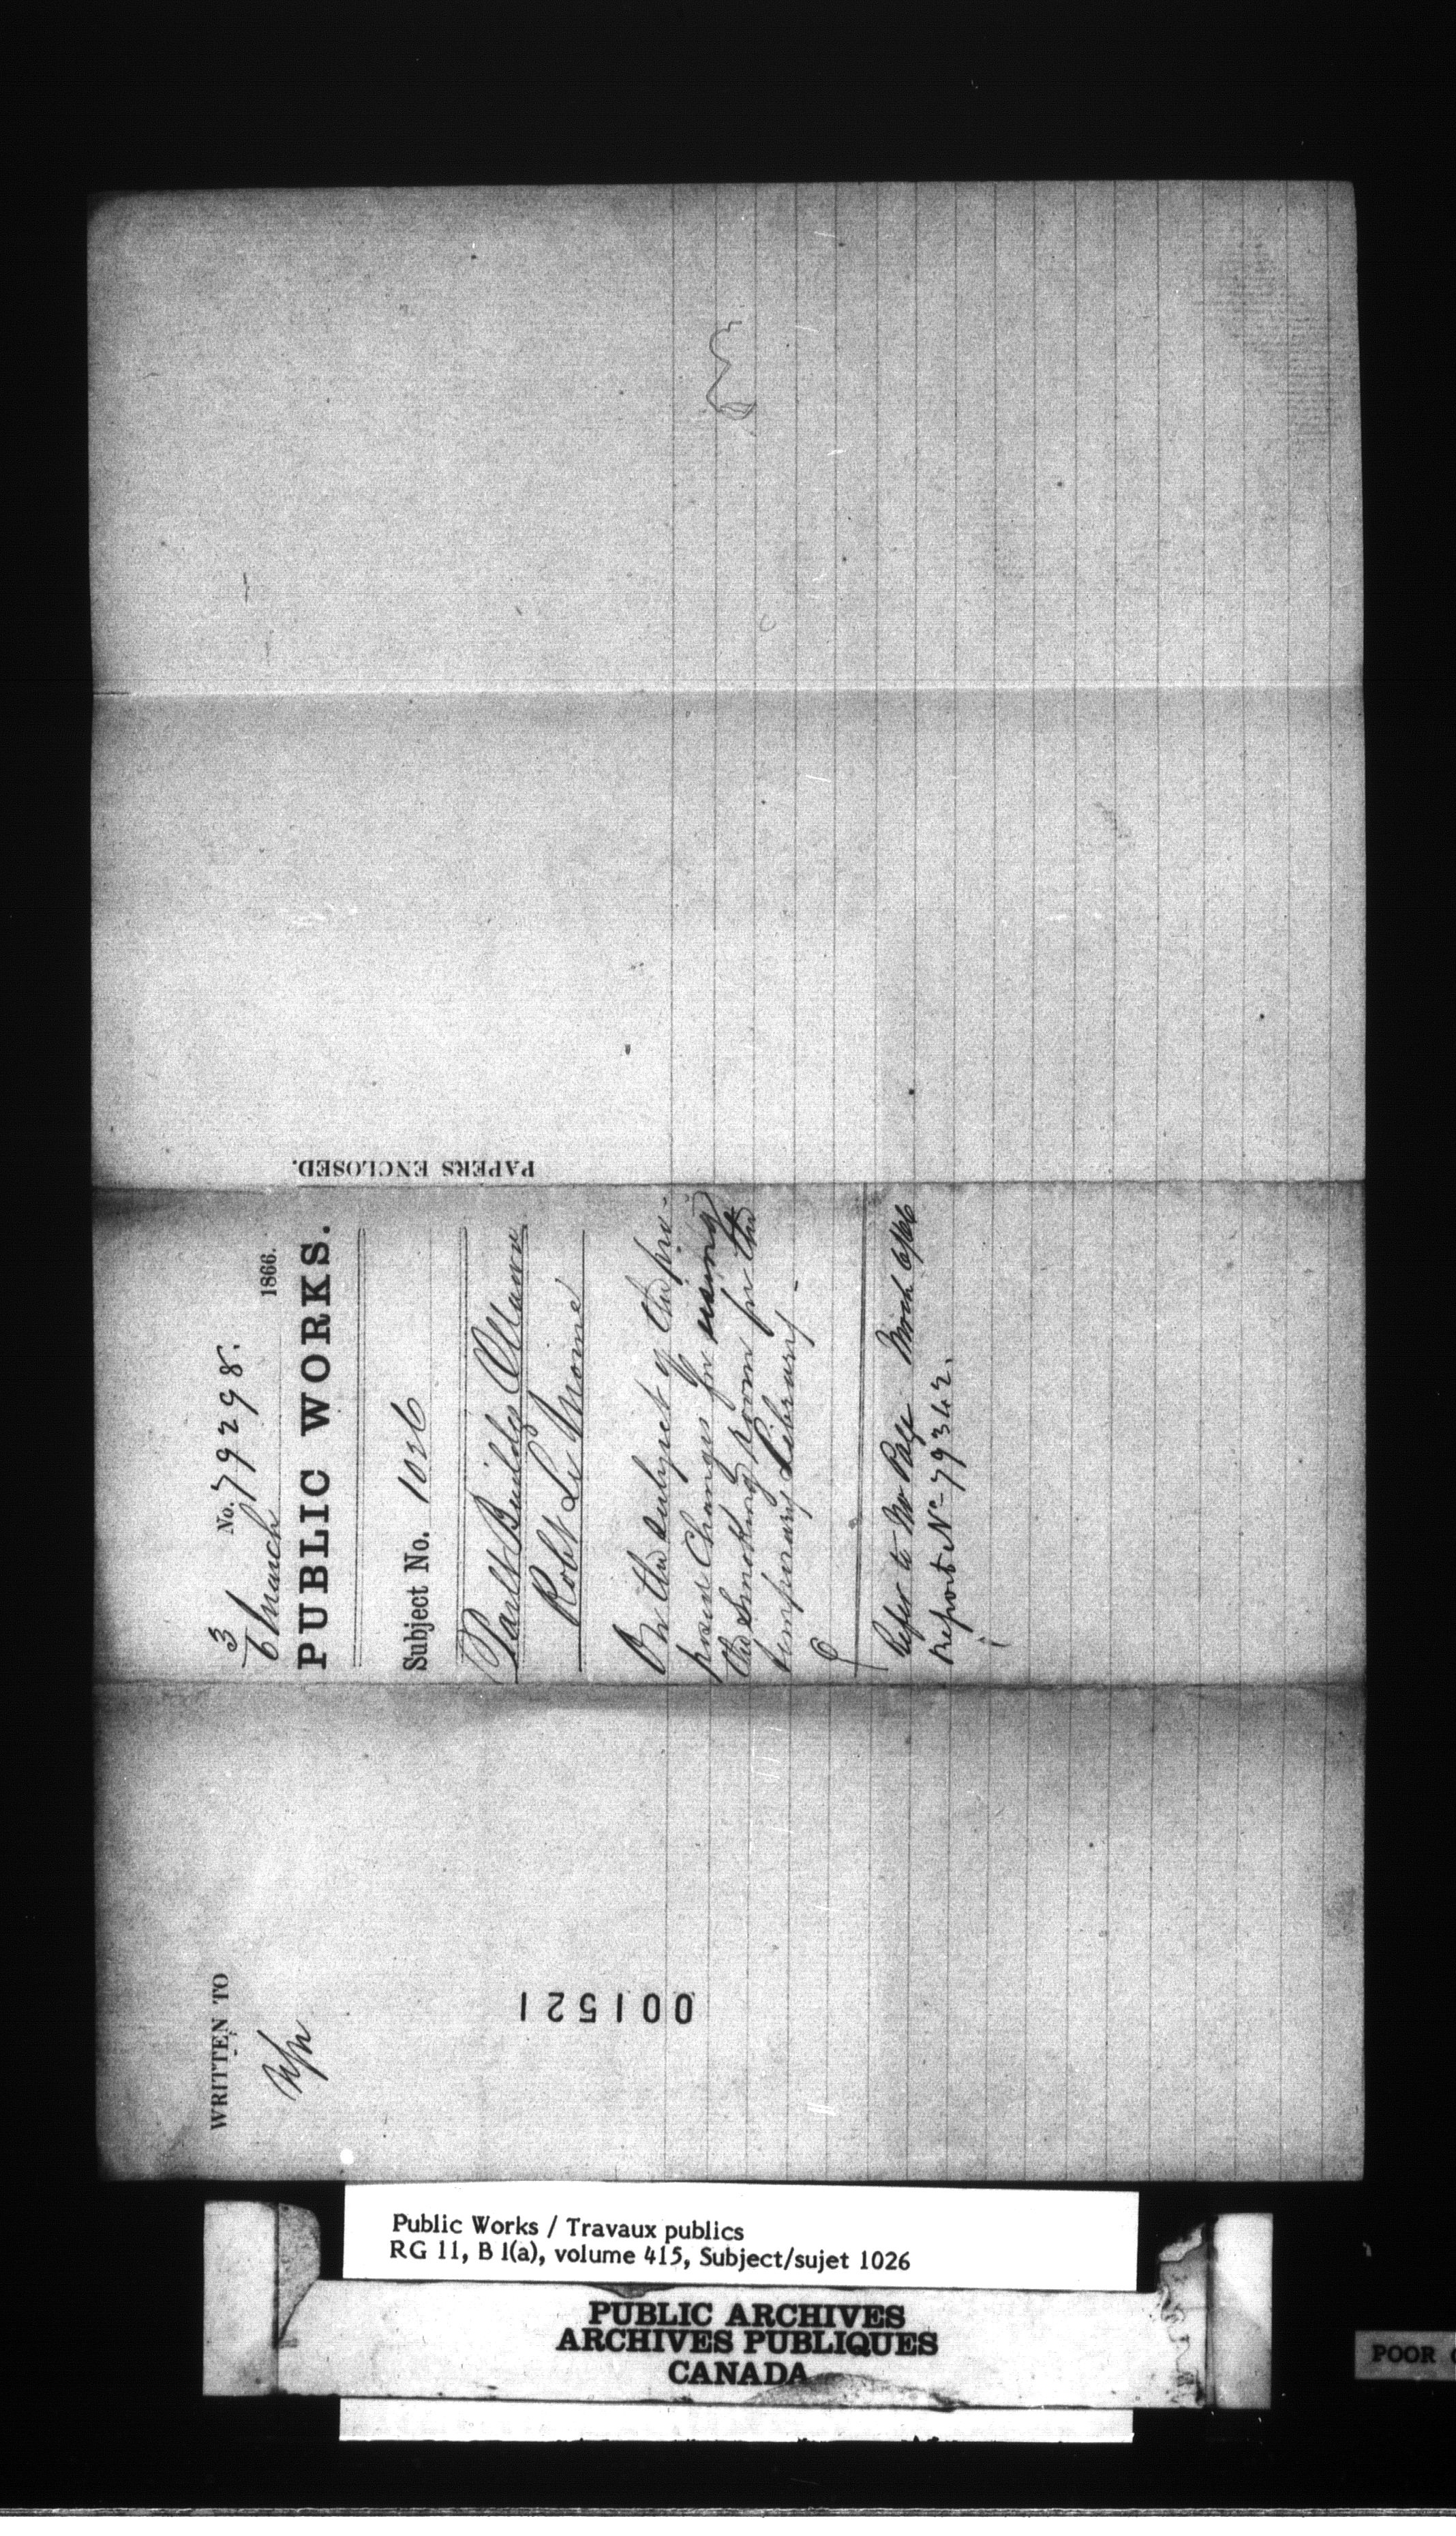 No. 79298.
3
6 March 1866.
PUBLIC WORKS.
Subject No. 1026
Parlt Buildgs Ottawa
Robt Le Moine
On the subject of the pro-
posed Changes for using
the Smoking Room for the
temporary Library -
Refer to Mr Page March 6/66
report No 79342.
PAPERS ENCLOSED.
WRITTEN TO
001521
Public Works / Travaux publics
RG 11, B 1(a), volume 415, Subject/sujet 1026
PUBLIC ARCHIVES
ARCHIVES PUBLIQUES
CANADA
POOR